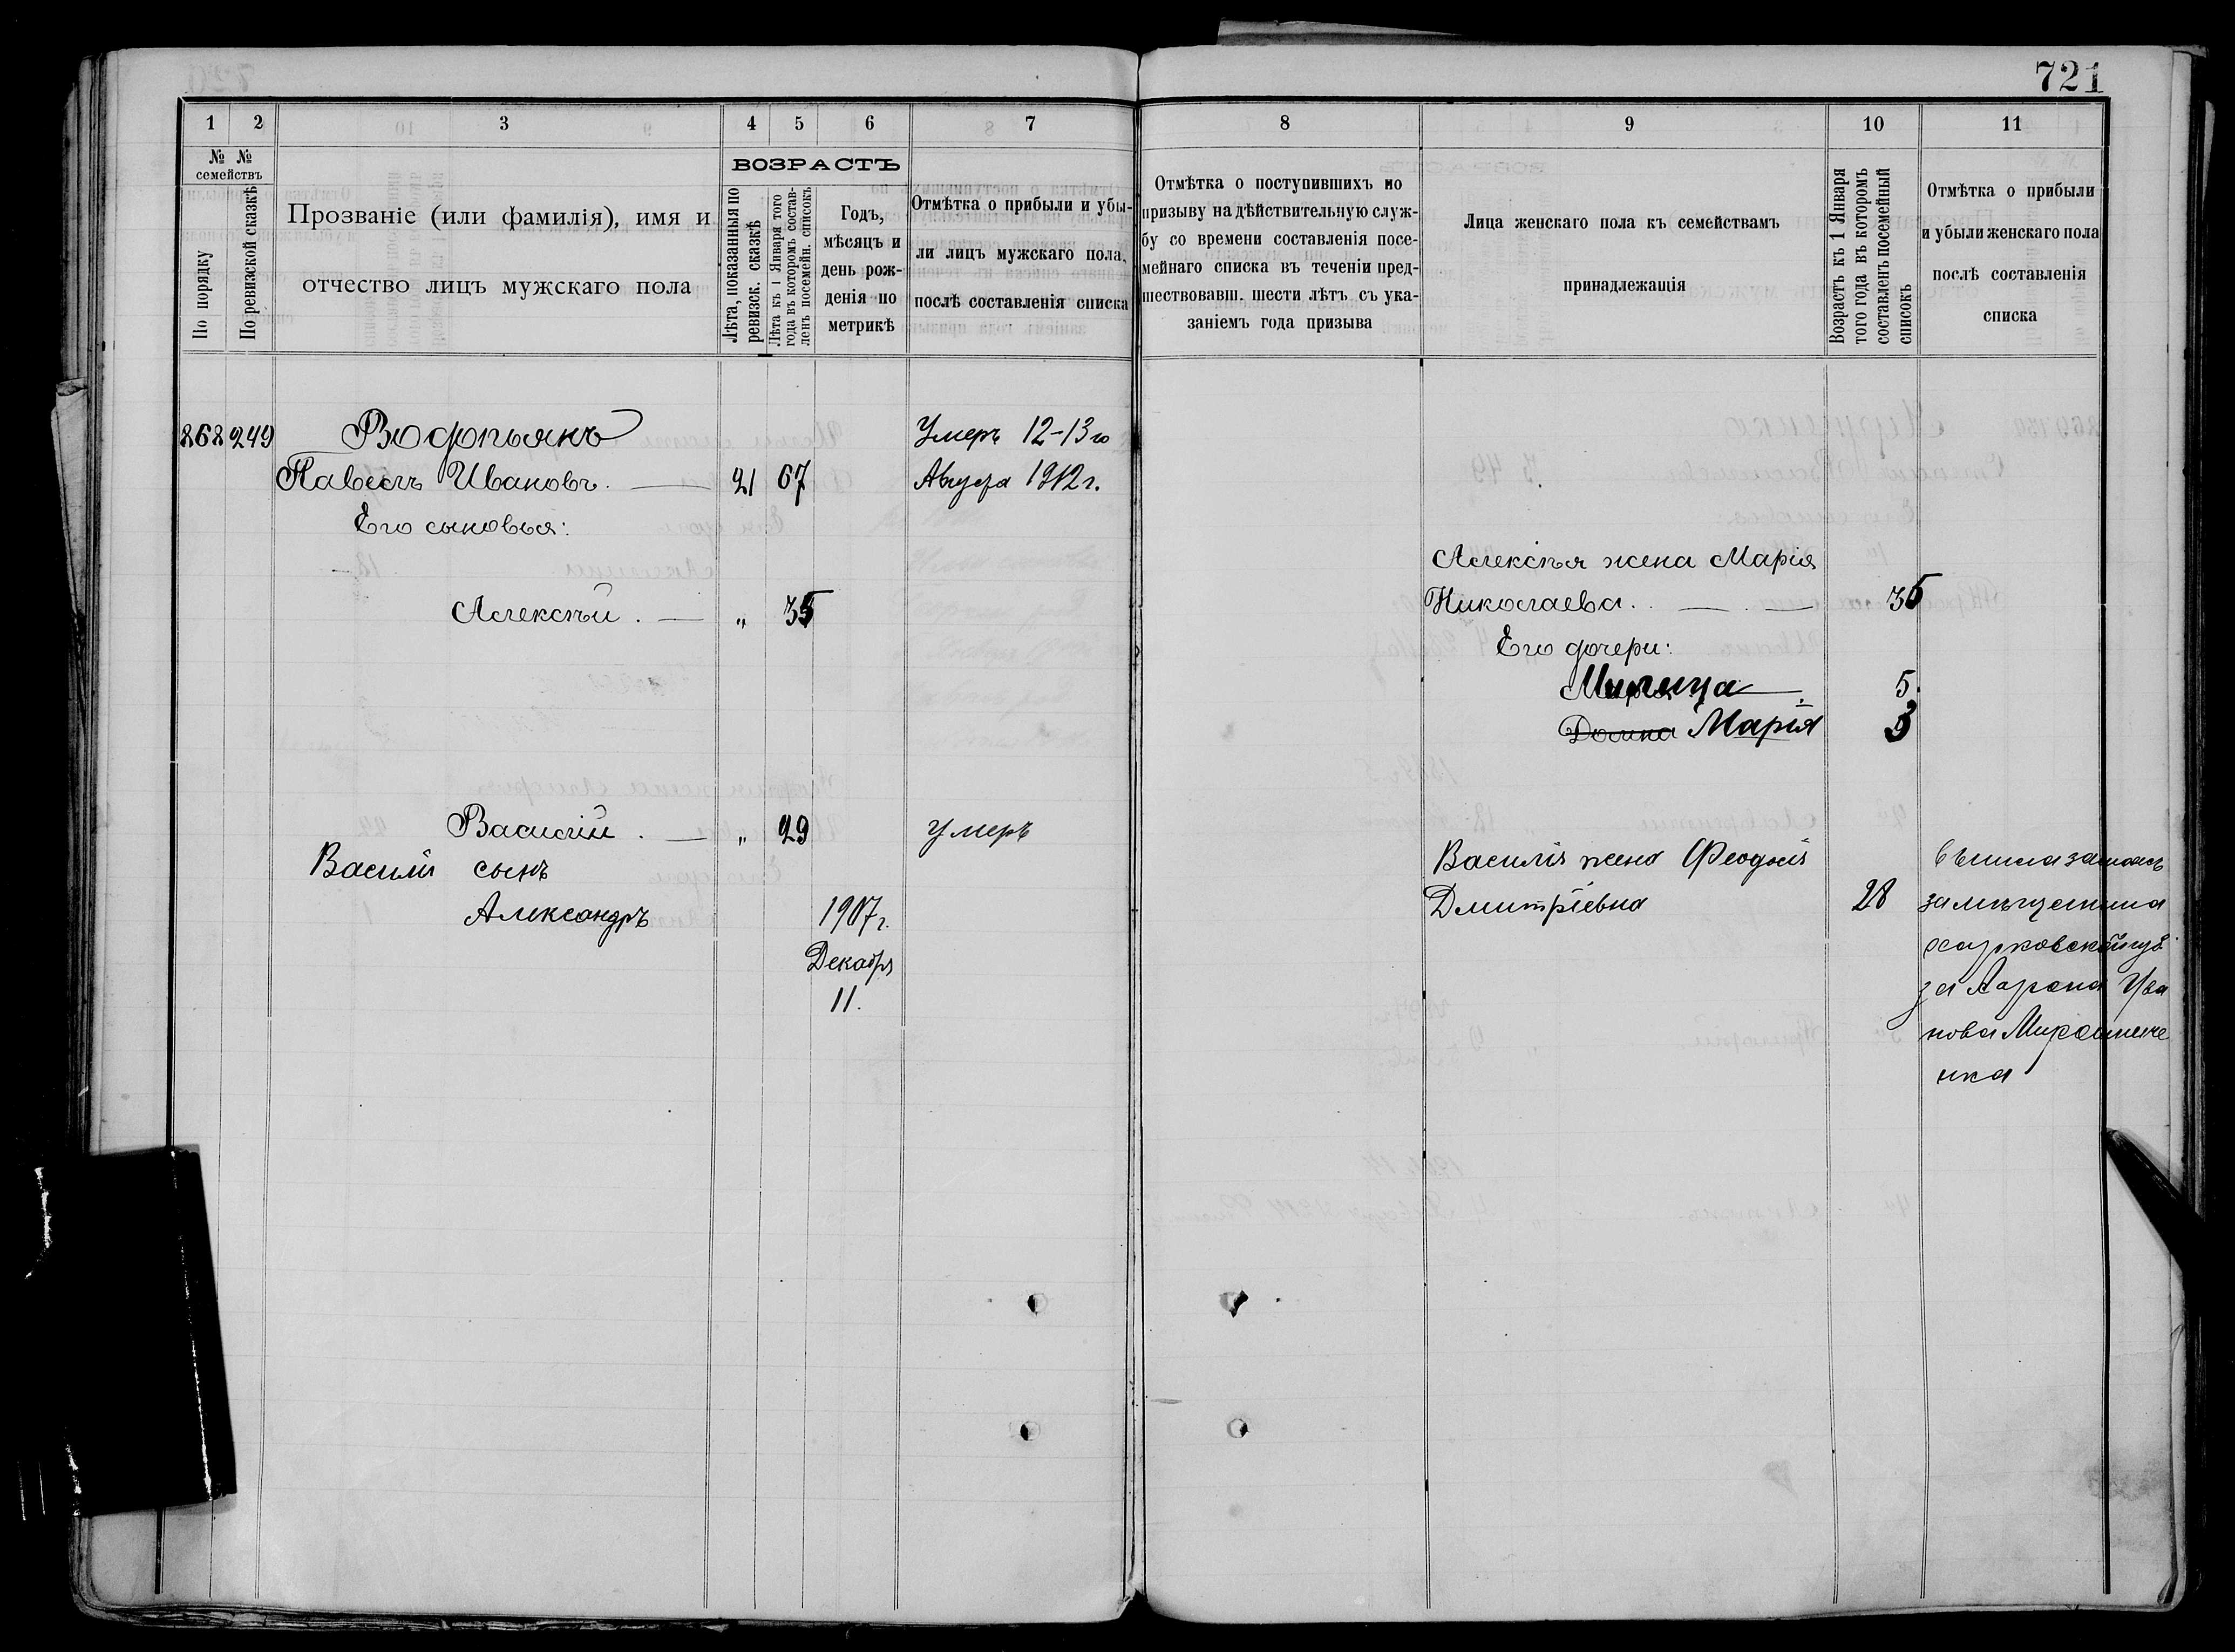 721
1 2 3 4 5 6 7 8 9 10 11
№ №
семействъ
По порядку
По ревизской сказкѣ
Прозваніе (или фамилія), имя и
отчество лицъ мужскаго пола
ВОЗРАСТЪ
Лѣта, показанныя по
ревизск. сказкѣ
Лѣта къ 1 Января того
года въ которомъ состав-
ленъ посемейн. списокъ
Годъ,
мѣсяцъ и
день рож-
денія по
метрикѣ
Отмѣтка о прибыли и убы-
ли лицъ мужскаго пола,
послѣ составленія списка
Отмѣтка о поступившихъ по
призыву на дѣйствительную служ-
бу со времени составленія посе-
мейнаго списка въ теченіи пред-
шествовавш. шести лѣтъ съ ука-
заніемъ года призыва
Лица женскаго пола къ семействамъ
принадлежащія
Возрастъ къ 1 Января
того года въ которомъ
составленъ посемейный
списокъ
Отмѣтка о прибыли
и убыли женскаго пола
послѣ составленія
списка
868 249 Водопьянъ Умеръ 12-13го
Павелъ Ивановъ. 21 67 Августа 1912 г.
Его сыновья:
Алексѣй. „ 35
Василій. „ 29 умеръ
Василія сынъ
Александръ 1907 г.
Декабря
11.
Алексѣя жена Марія
Николаева. 35
Его дочери:
Милица 5.
Домна Марія 3
Василія жена Феодосія
Дмитріевна 28
вышла замужъ
за мѣщанина
харьковской губ.
за Ива
нова Мирошниче
нка